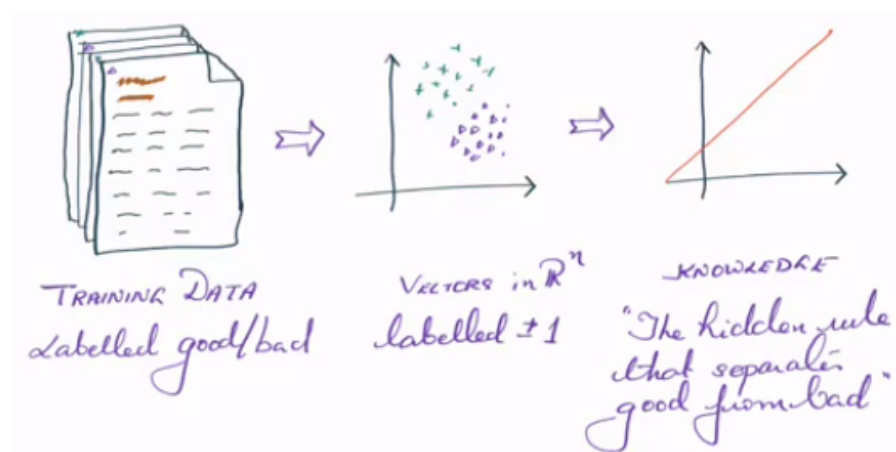 TRAINING DATA
Labelled good/bad
VECTORS in ℝⁿ
labelled ±1
KNOWLEDGE
"The hidden rule
that separates
good from bad"